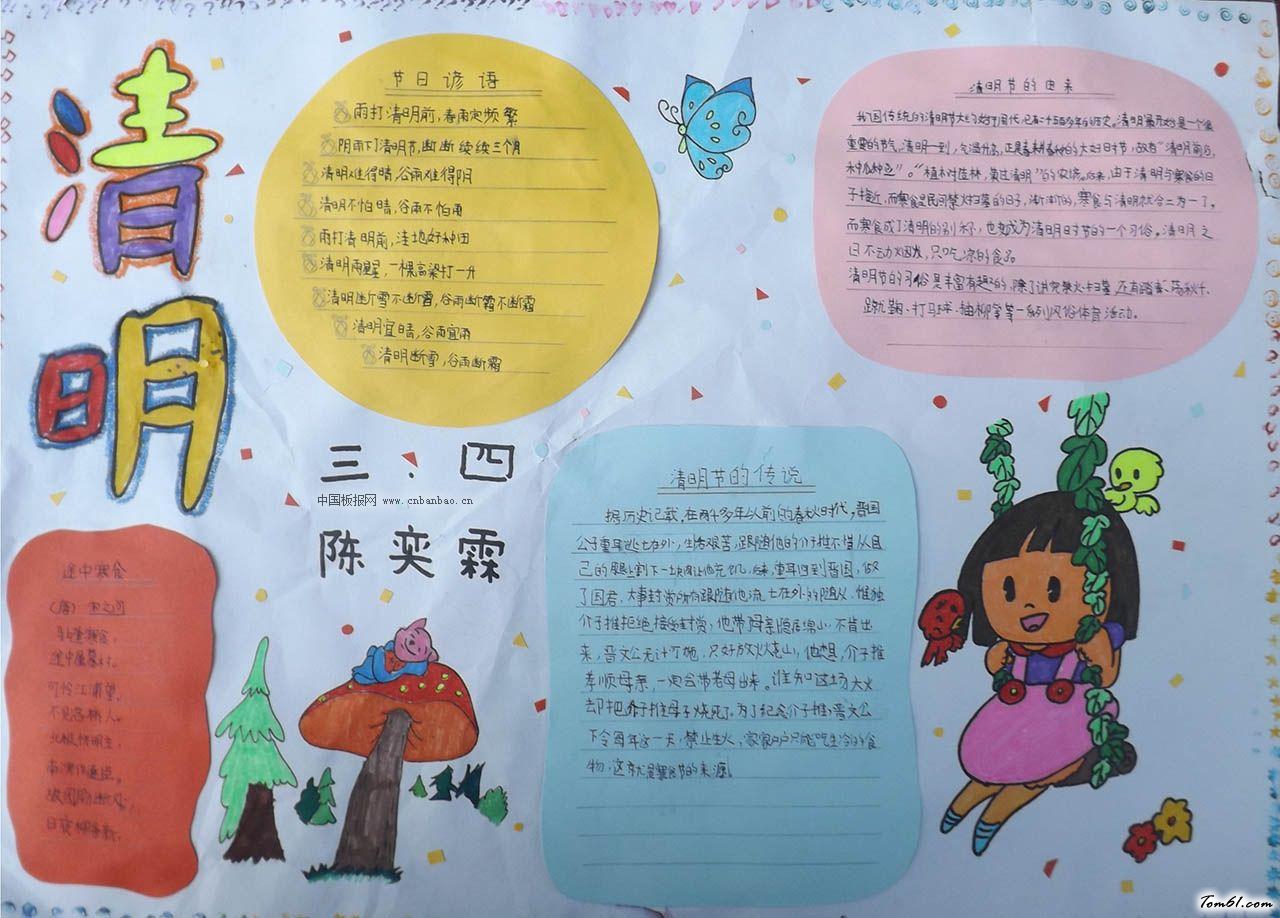 清明
节日谚语
雨打清明前，春雨定频繁
阴雨下了清明节，断断续续三个月
清明难得晴，谷雨难得阴
清明不怕晴，谷雨不怕雨
雨打清明前，洼地好种田
清明雨星星，一棵高粱打一升
清明断雪不断霜，谷雨断霜不断霜
清明宜晴，谷雨宜雨
清明断雪，谷雨断霜
清明节的由来
我国传统的清明节大约始于周代，已有二千五百多年的历史。清明最开始是一个很
重要的节气，清明一到，气温升高，正是春耕春种的大好时节，故有“清明前后，
种瓜种豆”。“植树造林，莫过清明”的农谚。后来，由于清明与寒食的日
子接近，而寒食是民间禁火扫墓的日子，渐渐的，寒食与清明就合二为一了。
而寒食成了清明的别称，也变成为清明时节的一个习俗。清明之
日不动烟火，只吃凉的食品。
清明节的习俗是丰富有趣的，除了讲究禁火、扫墓，还有踏青、荡秋千、
蹴鞠、打马球、插柳等一系列风俗体育活动。
三：四
中国板报网 www.cnbanbao.cn
陈奕霖
清明节的传说
据历史记载，在两千多年以前的春秋时代，晋国
公子重耳逃亡在外，生活艰苦，跟随他的介子推不惜从自
己的腿上割下一块肉让他充饥。后来，重耳回到晋国，做
了国君，大事封赏所有跟随他流亡在外的随从，惟独
介子推拒绝接受封赏，他带母亲隐居绵山，不肯出
来，晋文公无计可施，只好放火烧山，他想，介子推
孝顺母亲，一定会带老母出来。谁知这场大火
却把介子推母子烧死了。为了纪念介子推，晋文公
下令每年这一天，禁止生火，家家户户只能吃生冷的食
物，这就是寒食节的来源。
途中寒食
（唐）宋之问
马上逢寒食，
途中属暮春。
可怜江浦望，
不见洛桥人。
北极怀明主，
南溟作逐臣。
故园肠断处，
日夜柳条新。
Tom61.com